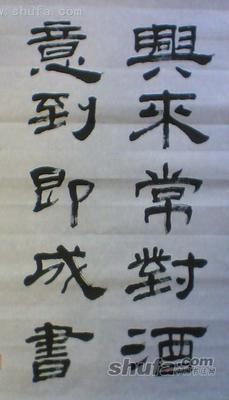 興來常對酒
意到即成書
www.shufa.com
shufa.com